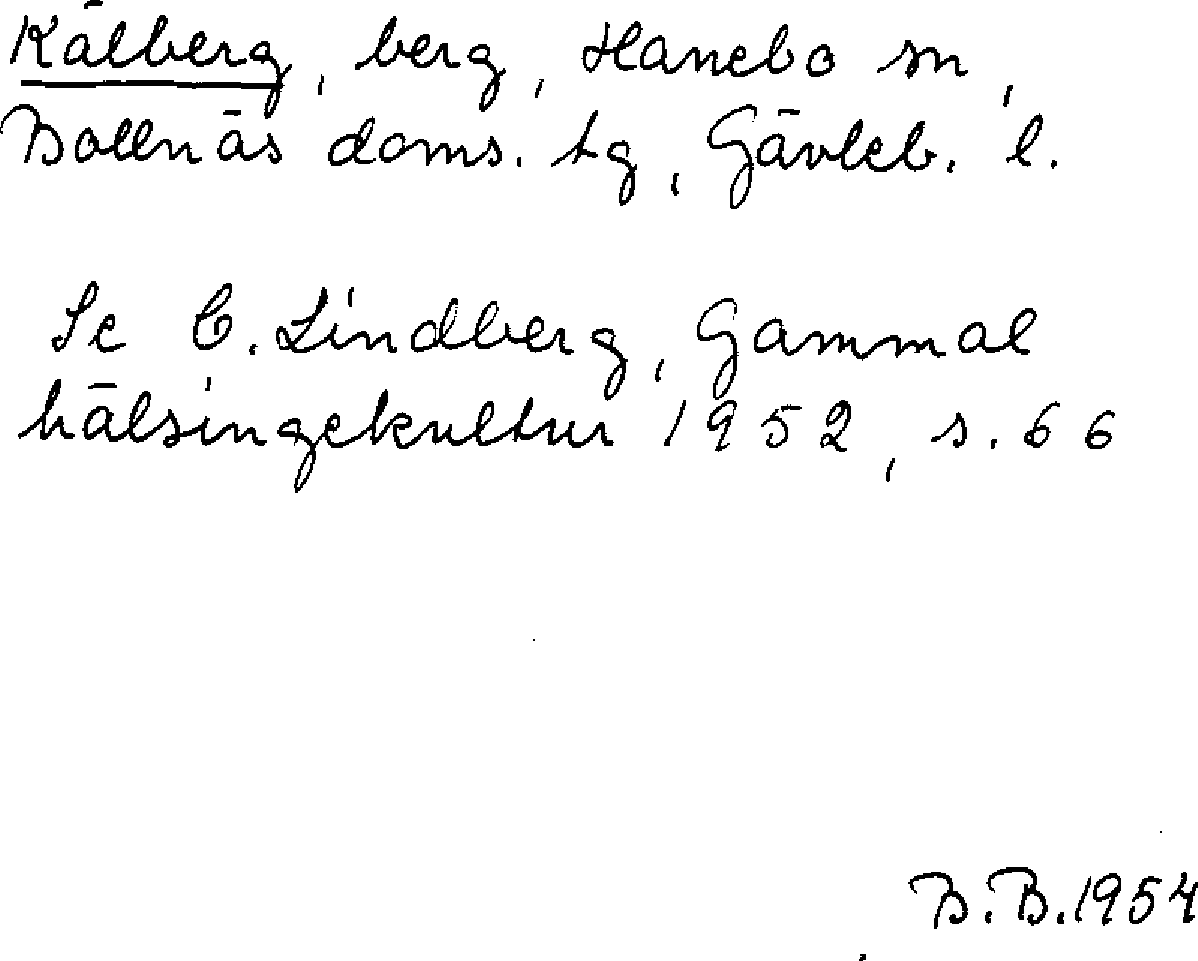 Kälberg, berg, Hanebo sn,
Bollnäs doms. tg, Gävleb. l.
Se C. Lindberg, Gammal
hälsingekultur 1952, s. 66
B.B. 1954